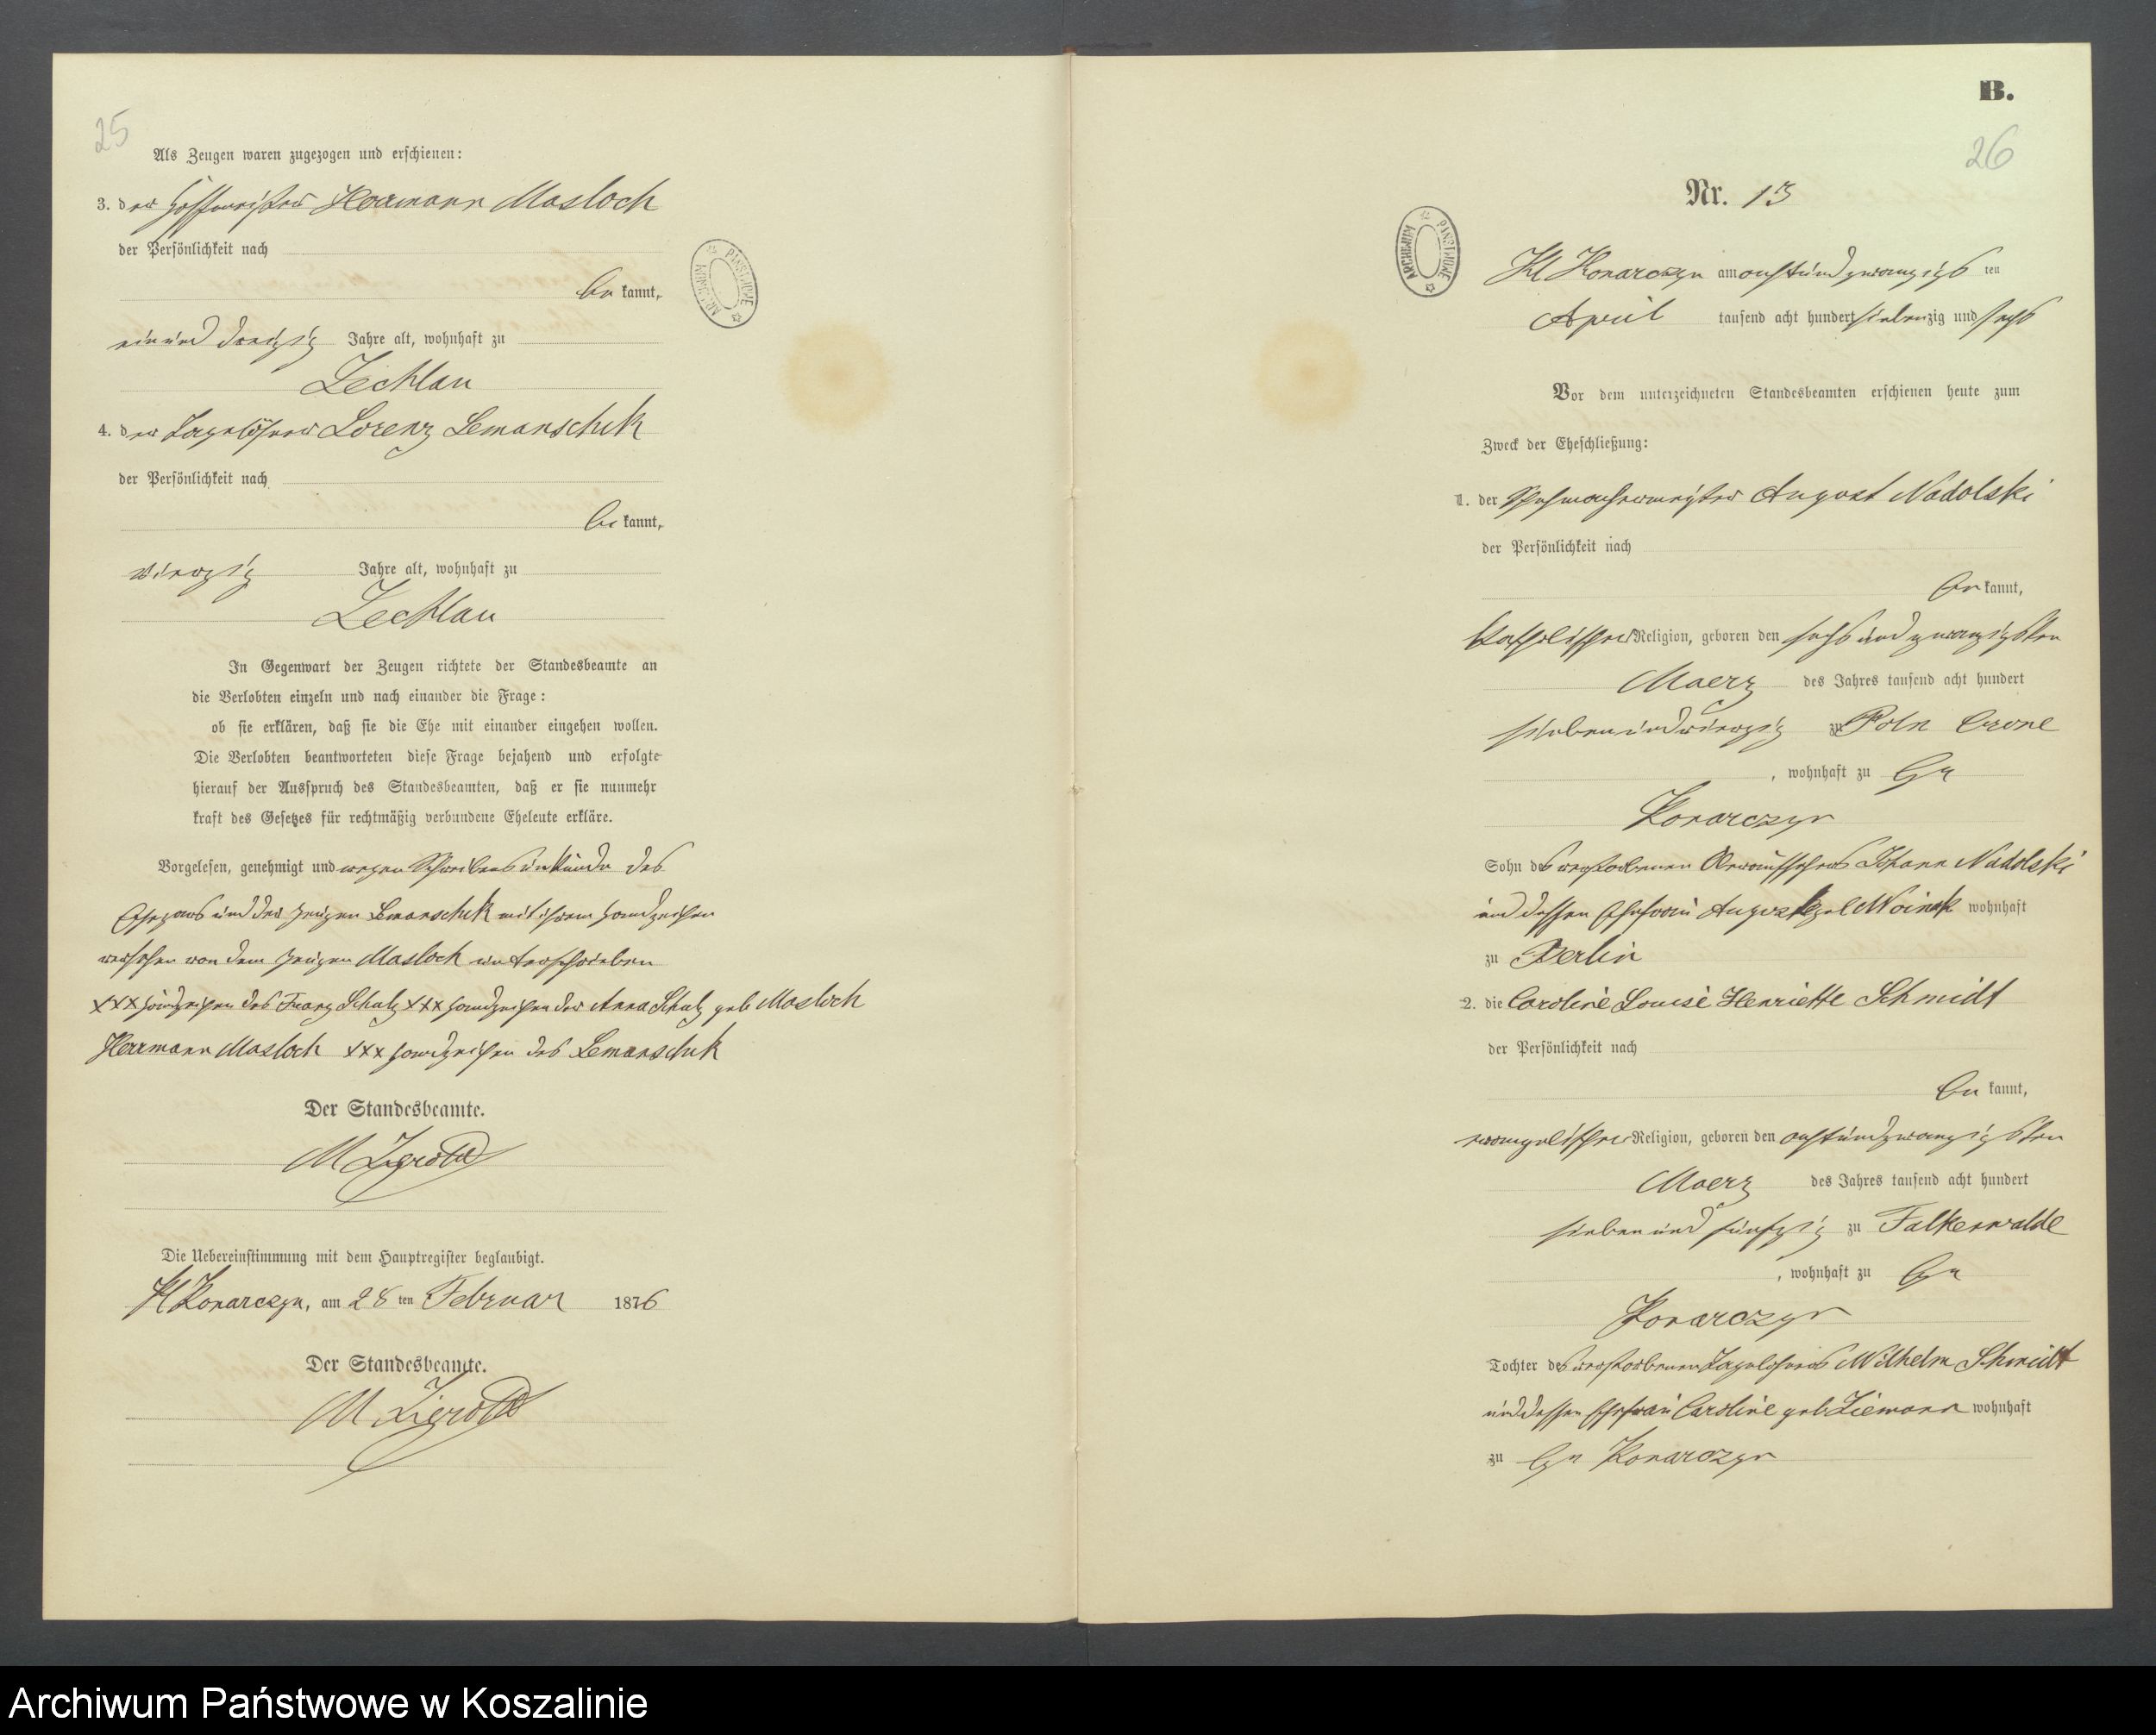 25
Als Zeugen waren zugezogen und erschienen:
3. der Hofmeister Herrmann Masloch
der Persönlichkeit nach
bekannt,
einunddreißig Jahre alt, wohnhaft zu
Zechlau
4. der Tagelöhner Lorenz Lemanschik
der Persönlichkeit nach
bekannt,
vierzig Jahre alt, wohnhaft zu
Zechlau
In Gegenwart der Zeugen richtete der Standesbeamte an
die Verlobten einzeln und nach einander die Frage:
ob sie erklären, daß sie die Ehe mit einander eingehen wollen.
Die Verlobten beantworteten diese Frage bejahend und erfolgte
hierauf der Ausspruch des Standesbeamten, daß er sie nunmehr
kraft des Gesetzes für rechtmäßig verbundene Eheleute erkläre.
Vorgelesen, genehmigt und wegen Schreibensunkunde des
Ehepaars und des Zeugen Lemanschik mit ihrem Handzeichen
versehen von dem Zeugen Masloch unterschrieben
XXX Handzeichen des Franz Schulz XXX Handzeichen der Anna Schulz geb Masloch
Herrmann Masloch XXX Handzeichen des Lemanschik
Der Standesbeamte.
Die Uebereinstimmung mit dem Hauptregister beglaubigt.
Kl Konarczyn, am 28 ten Februar 1876
Der Standesbeamte.
B.
26
Nr. 13
Kl Konarczyn am achtundzwanzigsten
April tausend acht hundert siebenzig und sechs
Vor dem unterzeichneten Standesbeamten erschienen heute zum
Zweck der Eheschließung:
1. der Schuhmachermeister August Nadolski
der Persönlichkeit nach
bekannt,
katholischer Religion, geboren den sechsundzwanzigsten
Maerz des Jahres tausend acht hundert
siebenundvierzig zu Poln Crone
, wohnhaft zu Gr
Konarczyn
Sohn des verstorbenen Johann Nadolski
und dessen Ehefrau August geb wohnhaft
zu Berlin
2. die Caroline Louise Henriette Schmidt
der Persönlichkeit nach
bekannt,
evangelischer Religion, geboren den achtundzwanzigsten
Maerz des Jahres tausend acht hundert
siebenundfünfzig zu Falkenwalde
, wohnhaft zu Gr
Konarczyn
Tochter des verstorbenen Tagelöhners Wilhelm Schmidt
und dessen Ehefrau Caroline geb Ziemann wohnhaft
zu Gr Konarczyn
ARCHIWUM PAŃSTWOWE
Archiwum Państwowe w Koszalinie